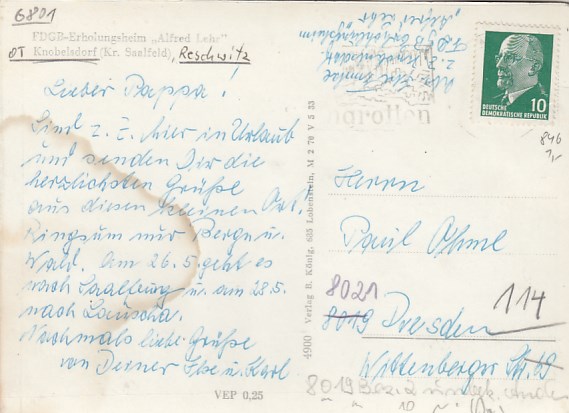 6801
FDGB-Erholungsheim „Alfred Lehr"
OT Knobelsdorf (Kr. Saalfeld), Reschwitz
Lieber Pappa!
Sind z. Z. hier in Urlaub
und senden Dir die
herzlichsten Grüße
aus diesen kleinen Ort.
Ringsum nur Berge u.
Wald. Am 26.5. geht es
nach Saalburg u. am 28.5.
nach Lauscha.
Nochmals liebe Grüße
von Deiner Else u. Karl
VEP 0,25
4900 Verlag B. König, 685 Lobenstein, M 2 70 V 5 33
FDGB Erholungsheim
„Alfred Lehr"
grotten
DEUTSCHE
DEMOKRATISCHE REPUBLIK
10
846
Herrn
Paul Ohme
8021
8019 Dresden 114
Wittenberger Str.
8019